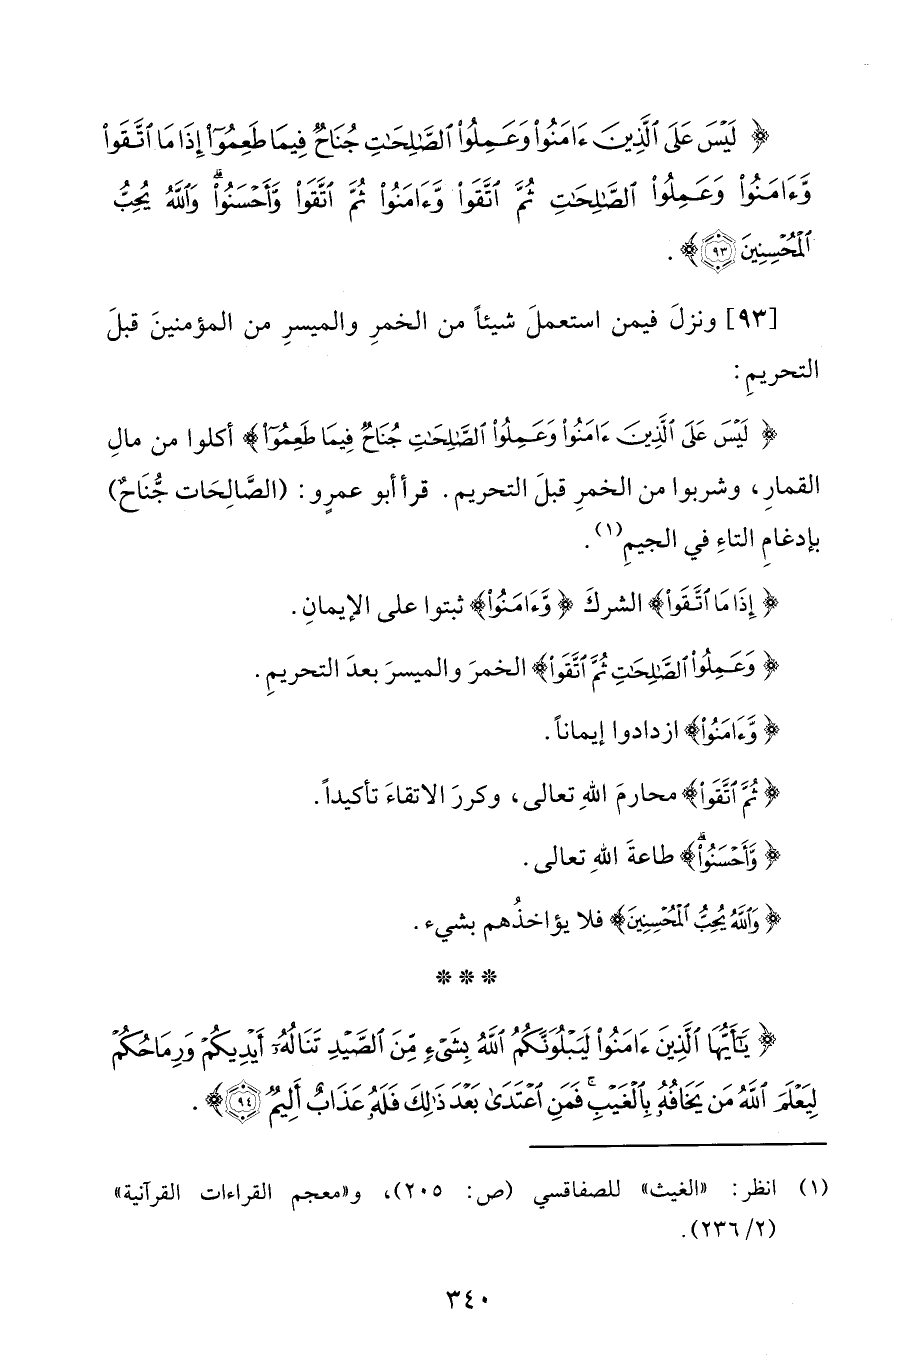 ﴿ لَيْسَ عَلَى ٱلَّذِينَ ءَامَنُوا۟ وَعَمِلُوا۟ ٱلصَّٰلِحَٰتِ جُنَاحٌ فِيمَا طَعِمُوٓا۟ إِذَا مَا ٱتَّقَوا۟
وَّءَامَنُوا۟ وَعَمِلُوا۟ ٱلصَّٰلِحَٰتِ ثُمَّ ٱتَّقَوا۟ وَّءَامَنُوا۟ ثُمَّ ٱتَّقَوا۟ وَّأَحْسَنُوا۟ ۗ وَٱللَّهُ يُحِبُّ
ٱلْمُحْسِنِينَ ٩٣ ﴾ .
[٩٣] ونزلَ فيمن استعملَ شيئاً من الخمرِ والميسرِ من المؤمنينَ قبلَ
التحريمِ :
﴿ لَيْسَ عَلَى ٱلَّذِينَ ءَامَنُوا۟ وَعَمِلُوا۟ ٱلصَّٰلِحَٰتِ جُنَاحٌ فِيمَا طَعِمُوٓا۟ ﴾ أكلوا من مالِ
القمارِ، وشربوا من الخمرِ قبلَ التحريم. قرأ أبو عمرٍو: (الصَّالِحَات جُّنَاحٌ)
بإدغامِ التاءِ في الجيمِ(١).
﴿ إِذَا مَا ٱتَّقَوا۟ ﴾ الشركَ ﴿ وَّءَامَنُوا۟ ﴾ ثبتوا على الإيمانِ.
﴿ وَعَمِلُوا۟ ٱلصَّٰلِحَٰتِ ثُمَّ ٱتَّقَوا۟ ﴾ الخمرَ والميسرَ بعدَ التحريمِ.
﴿ وَّءَامَنُوا۟ ﴾ ازدادوا إيماناً.
﴿ ثُمَّ ٱتَّقَوا۟ ﴾ محارمَ اللهِ تعالى، وكررَ الاتقاءَ تأكيداً.
﴿ وَّأَحْسَنُوا۟ ۗ ﴾ طاعةَ اللهِ تعالى.
﴿ وَٱللَّهُ يُحِبُّ ٱلْمُحْسِنِينَ ﴾ فلا يؤاخذُهم بشيء.
* * *
﴿ يَٰٓأَيُّهَا ٱلَّذِينَ ءَامَنُوا۟ لَيَبْلُوَنَّكُمُ ٱللَّهُ بِشَىْءٍ مِّنَ ٱلصَّيْدِ تَنَالُهُۥٓ أَيْدِيكُمْ وَرِمَاحُكُمْ
لِيَعْلَمَ ٱللَّهُ مَن يَخَافُهُۥ بِٱلْغَيْبِ ۚ فَمَنِ ٱعْتَدَىٰ بَعْدَ ذَٰلِكَ فَلَهُۥ عَذَابٌ أَلِيمٌ ٩٤ ﴾ .
(١) انظر: «الغيث» للصفاقسي (ص: ٢٠٥)، و«معجم القراءات القرآنية»
(٢/ ٢٣٦).
٣٤٠